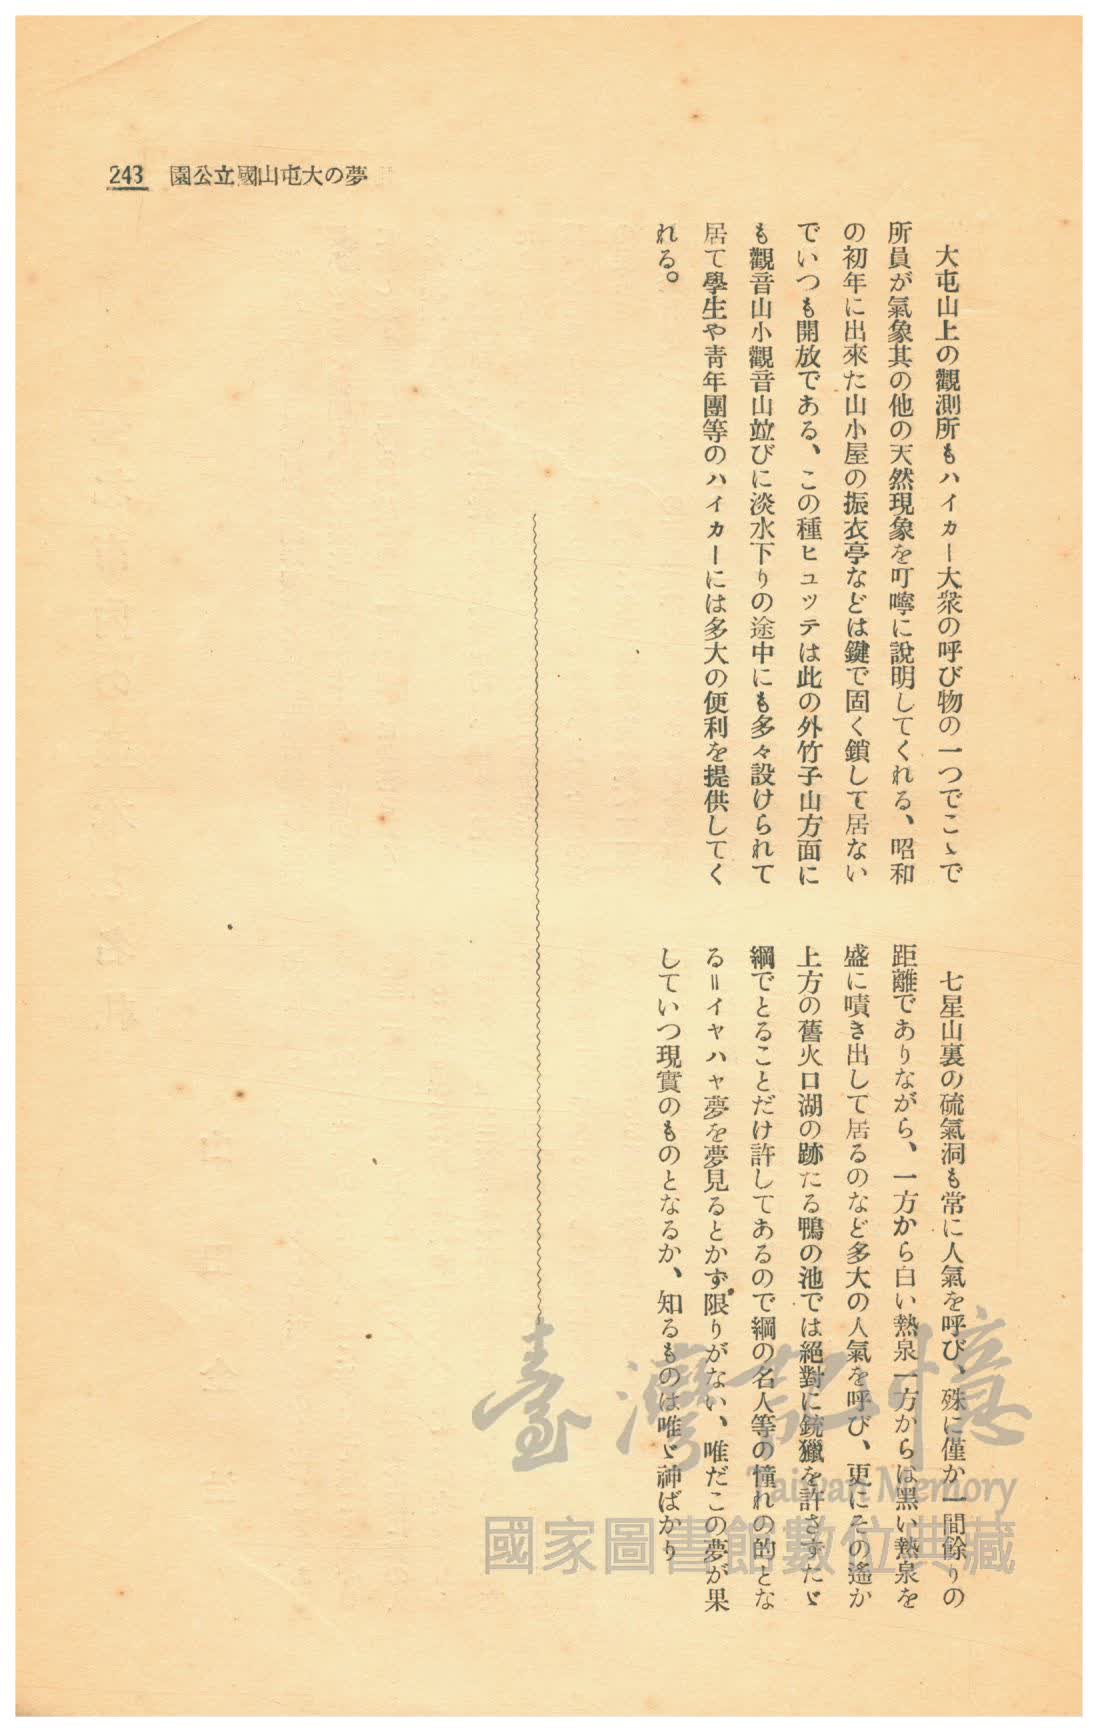 243 園公立國山屯大の夢
大屯山上の觀測所もハイカー大衆の呼び物の一つでこゝで
所員が氣象其の他の天然現象を叮嚀に說明してくれる、昭和
の初年に出來た山小屋の振衣亭などは鍵で固く鎖して居ない
でいつも開放である、この種ヒュッテは此の外竹子山方面に
も觀音山小觀音山竝びに淡水下りの途中にも多々設けられて
居て學生や靑年團等のハイカーには多大の便利を提供してく
れる。
七星山裏の硫氣洞も常に人氣を呼び、殊に僅か一間餘りの
距離でありながら、一方から白い熱泉一方からは黑い熱泉を
盛に噴き出して居るのなど多大の人氣を呼び、更にその遙か
上方の舊火口湖の跡たる鴨の池では絕對に銃獵を許さずたゞ
綱でとることだけ許してあるので綱の名人等の憧れの的とな
る＝イヤハヤ夢を夢見るとかず限りがない、唯だこの夢が果
していつ現實のものとなるか、知るものは唯ゞ神ばかり
臺灣記憶
Taiwan Memory
國家圖書館數位典藏